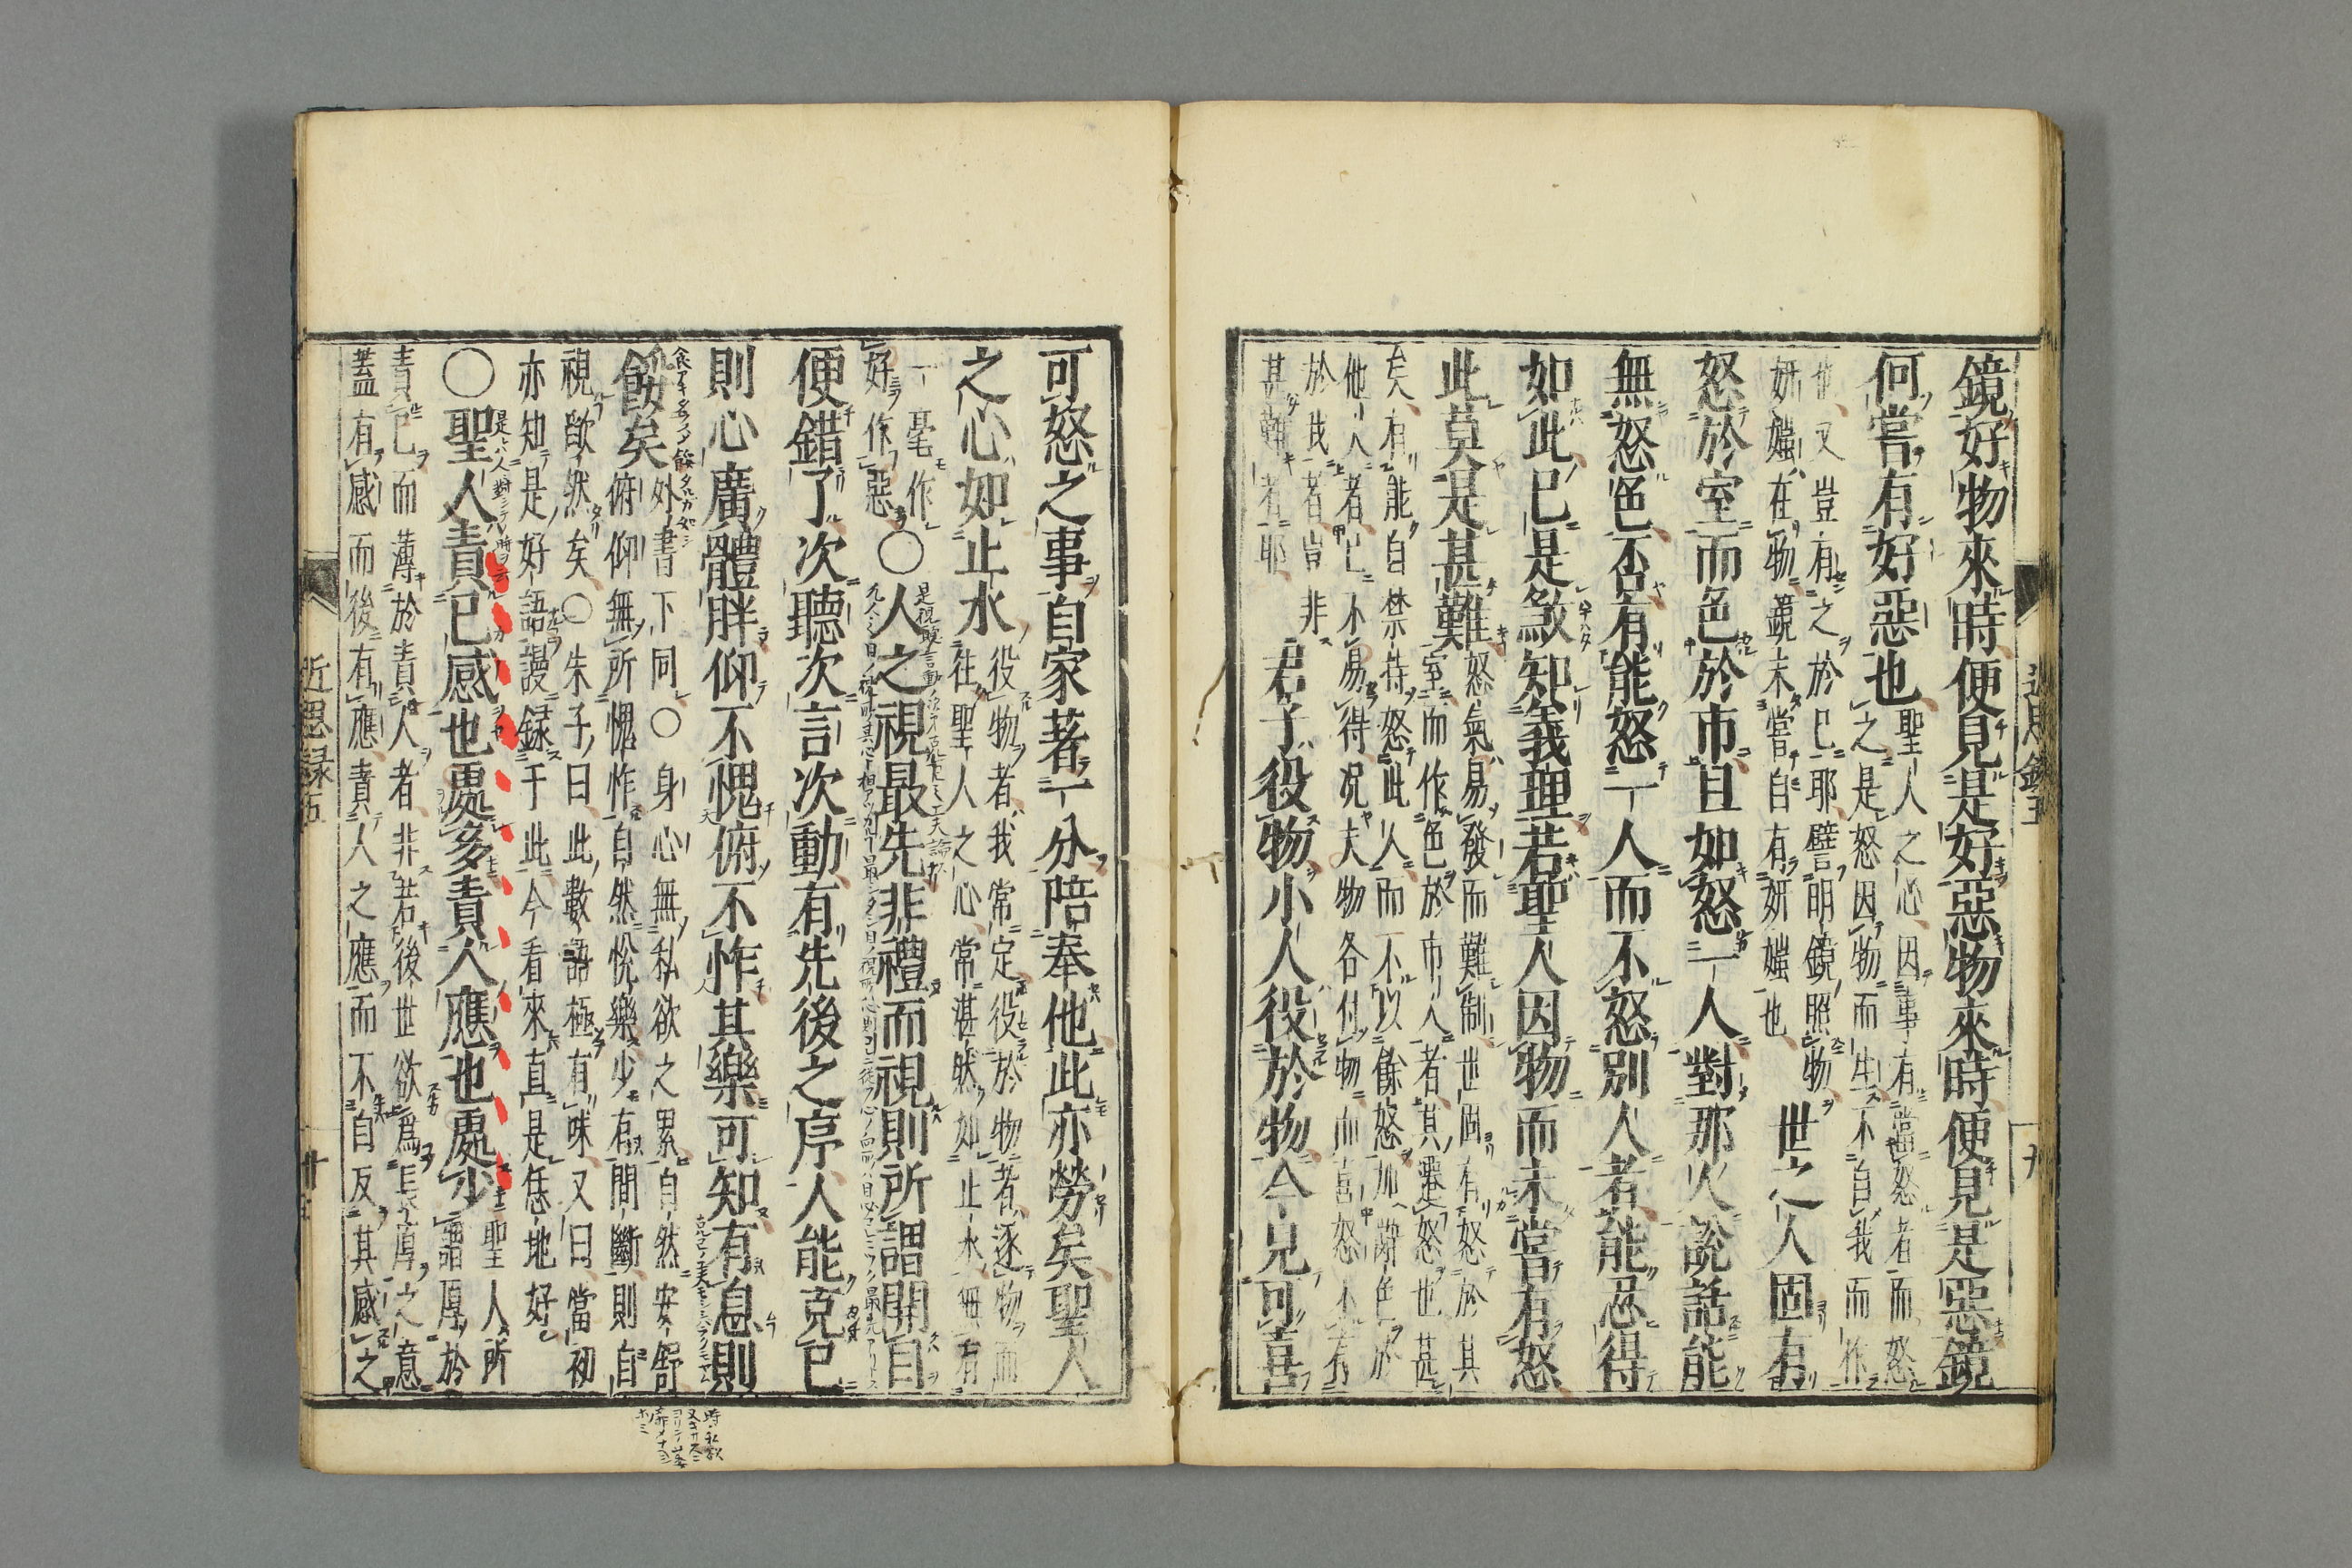 鏡好物來時便見是好惡物來時便見是惡鏡
何嘗有好惡也
聖人之心因事有當怒者而怒
之是怒因物而生不自我而作
也又豈有之於己耶譬明鏡照物
妍媸在物鏡未嘗自有妍媸也
世之人固有
怒於室而色於市且如怒一人對那人說話能
無怒色否有能怒一人而不怒別人者能忍得
如此已是煞知義理若聖人因物而未嘗有怒
此莫是甚難
怒氣易發而難制世固有怒於其
室而作色於市人者其遷怒也甚
矣有能自禁持怒此人而不以餘怒加辭色於
他人者已不易得況夫物各付物而喜怒不有
於我者豈非
甚難者耶
君子役物小人役於物今見可喜
近思錄五
可怒之事自家著一分陪奉他此亦勞矣聖人
之心如止水
役物者我常定役於物者逐物而
往聖人之心常湛然如止水無有
一毫作
好作惡
○人之視最先非禮而視則所謂開目
便錯了次聽次言次動有先後之序人能克己
則心廣體胖仰不愧俯不怍其樂可知有息則
餒矣
外書下同○身心無私欲之累自然安舒
俯仰無所愧怍自然悅樂少有間斷則自
視歉然矣○朱子曰此數語極有味又曰當初
亦知是好語謾錄于此今看來直是恁地好
○聖人責己感也處多責人應也處少
聖人所
謂厚於
責己而薄於責人者非若後世欲爲長厚之意
蓋有感而後有應責人之應而不自反其感之
近思録五